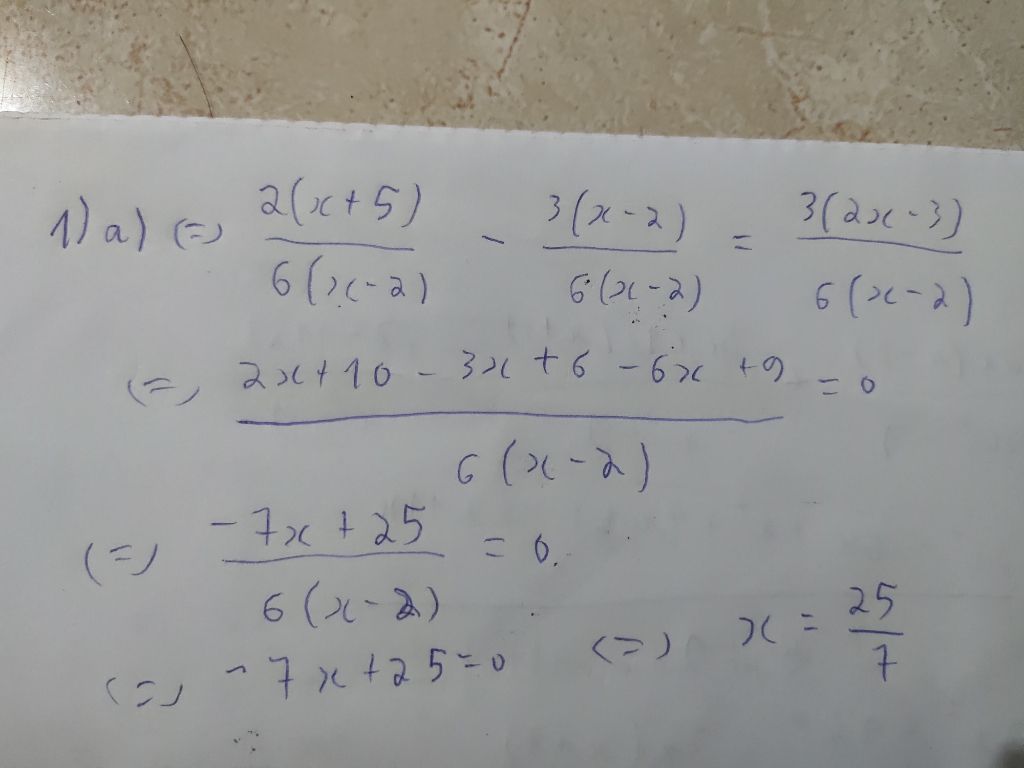 1) a) (=) 2(x+5)/6(x-2) - 3(x-2)/6(x-2) = 3(2x-3)/6(x-2)
(=) 2x+10-3x+6-6x+9/6(x-2) = 0
(=) -7x+25/6(x-2) = 0.
(=) -7x+25=0 (=) x = 25/7